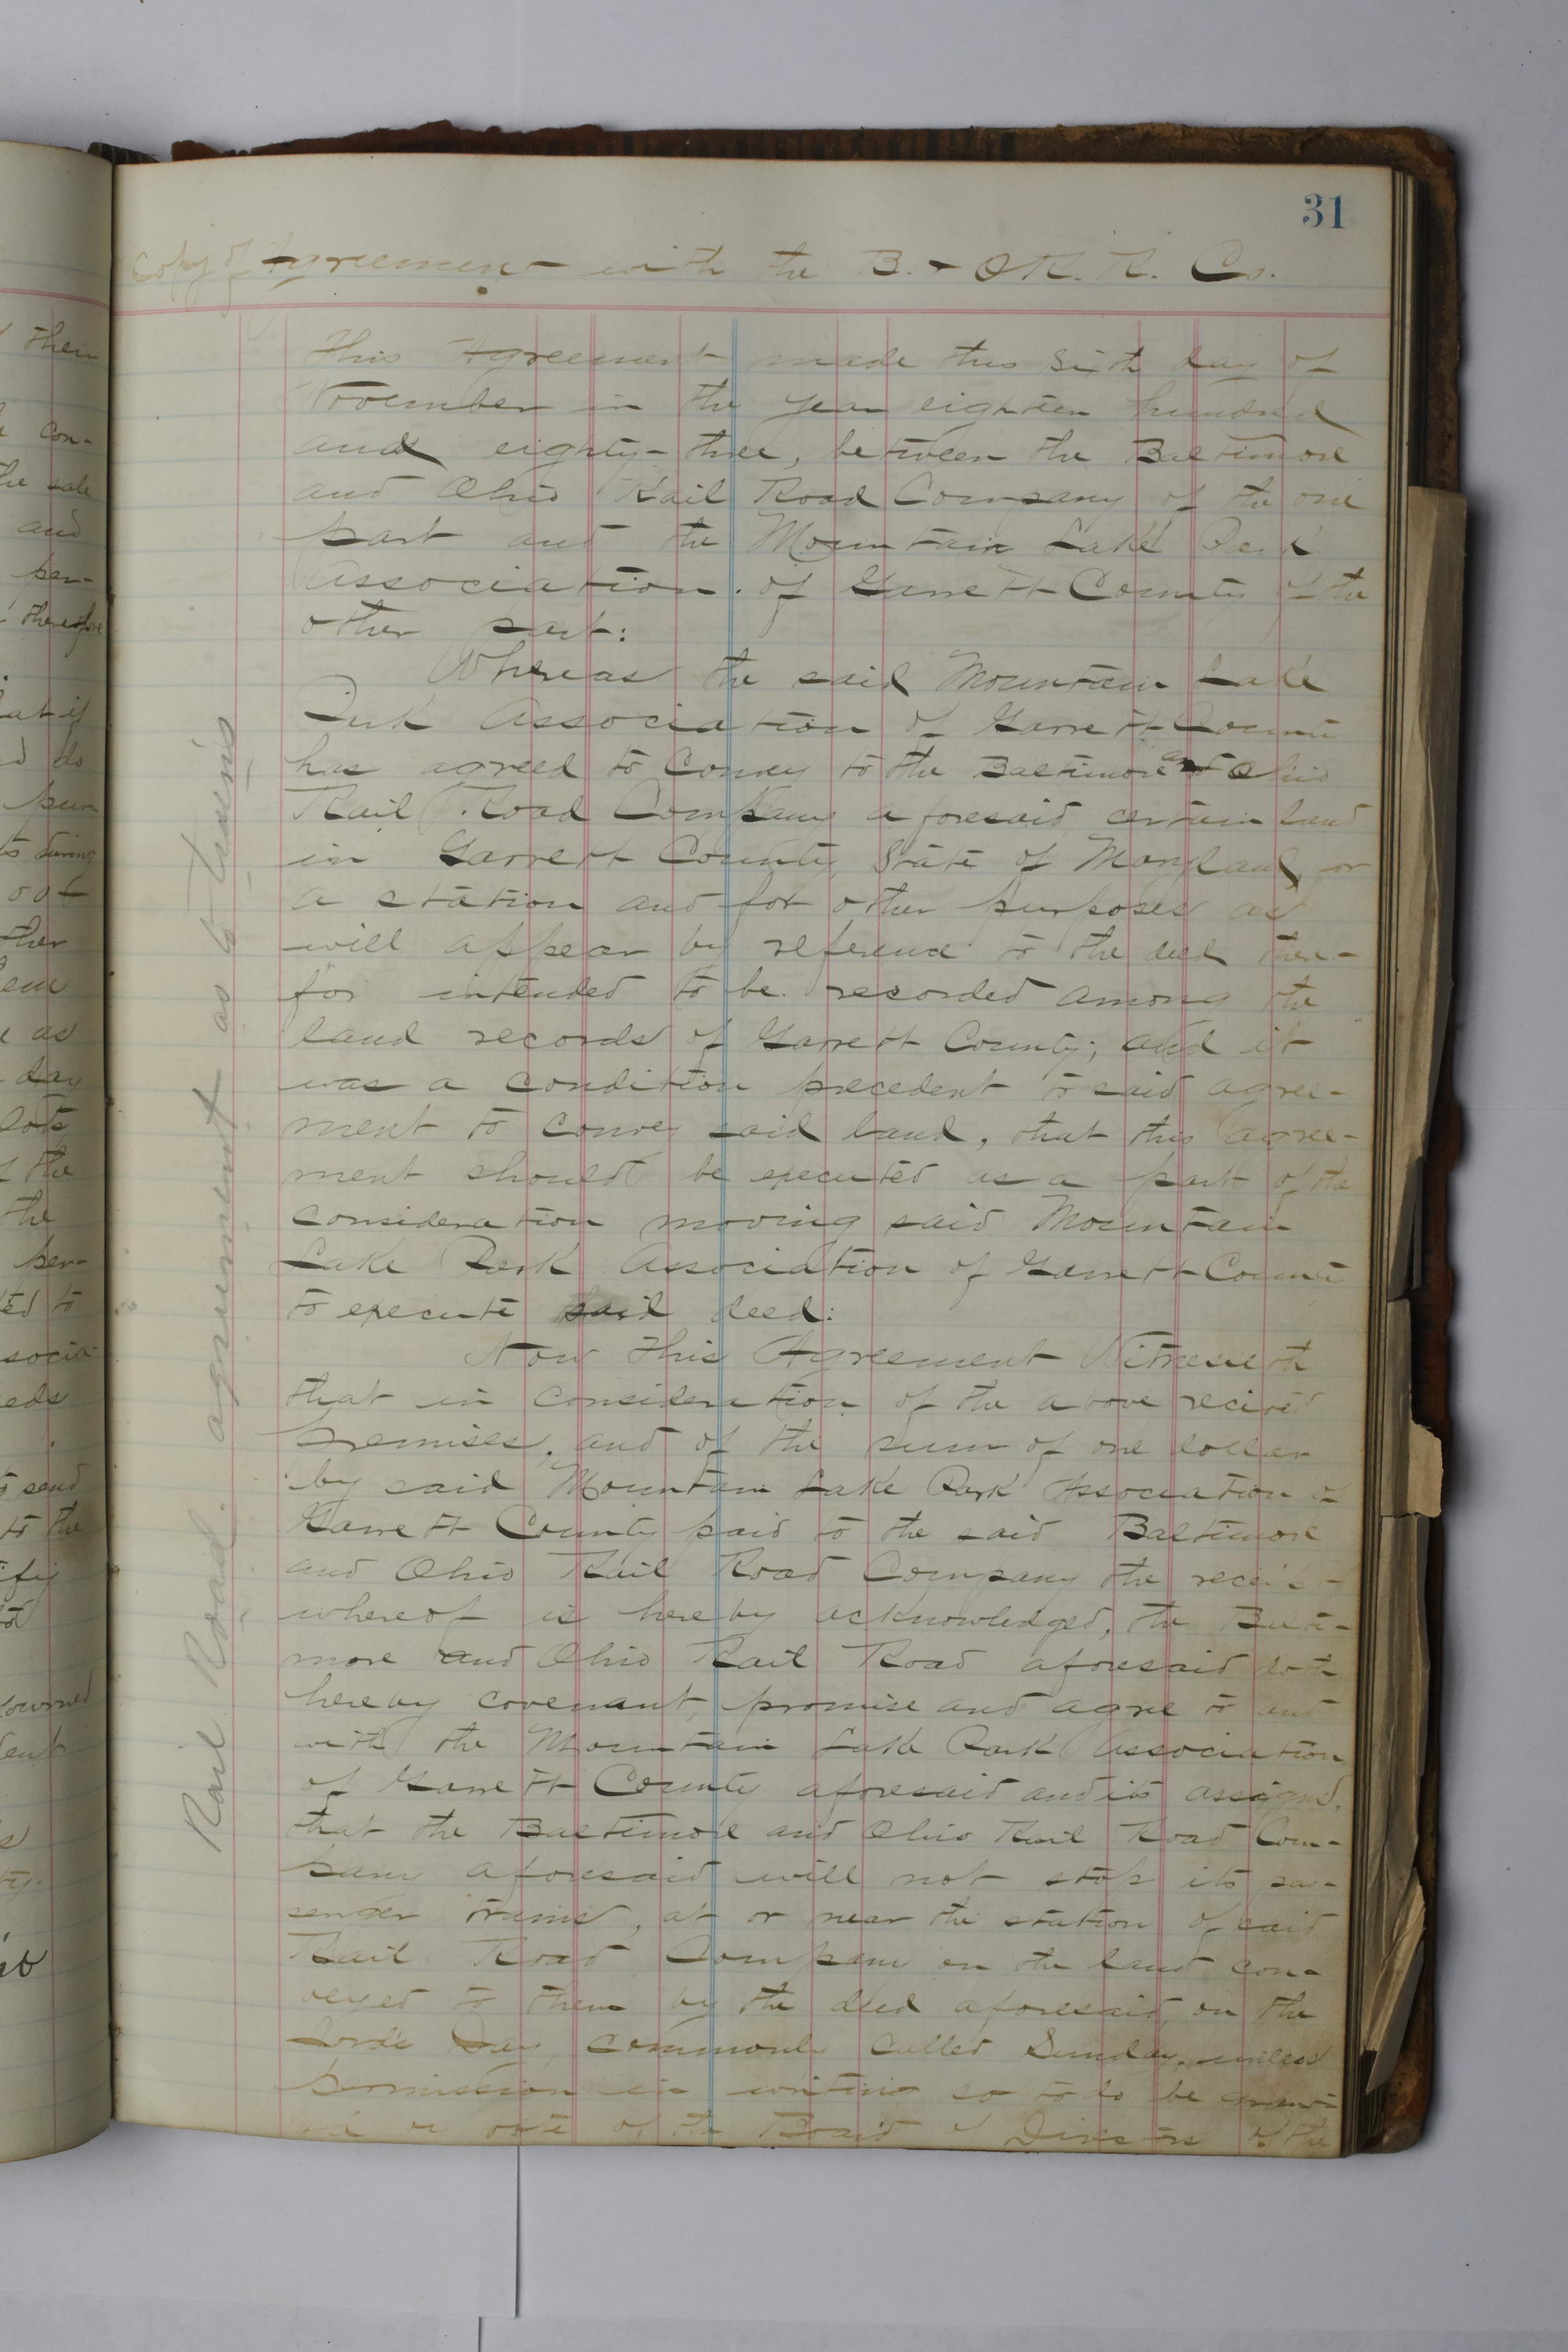 31
Copy of Agreement with the B. & O R. R. Co.
This Agreement made this Sixth day of
November in the year eighteen hundred
and eighty-three, between the Baltimore
and Ohio Rail Road Company of the one
part and the Mountain Lake Park
Association of Garrett County of the
other part:
Whereas the said Mountain Lake
Park Association of Garrett County
has agreed to Convey to the Baltimore and Ohio
Rail Road Company aforesaid certain land
in Garrett County, State of Maryland, for
a station and for other purposes as
will appear by reference to the deed there-
for intended to be recorded among the
land records of Garrett County; and it
was a condition precedent to said agree-
ment to convey said land, that this agree-
ment should be executed as a part of the
consideration moving said Mountain
Lake Park Association of Garrett County
to execute said deed:
Now This Agreement Witnesseth
that in consideration of the above recited
premises, and of the sum of one dollar
by said Mountain Lake Park Association of
Garrett County paid to the said Baltimore
and Ohio Rail Road Company the receipt
whereof is hereby acknowledged, the Balti-
more and Ohio Rail Road aforesaid doth
hereby covenant, promise and agree to and
with the Mountain Lake Park Association
of Garrett County aforesaid and its assigns,
that the Baltimore and Ohio Rail Road Com-
pany aforesaid will not stop its pas-
senger trains, at or near the station of said
Rail Road Company on the land con-
veyed to them by the deed aforesaid, on the
Lord's Day, commonly called Sunday, unless
permission in writing so to do be grant-
ed vote of the Board of Directors of the
Rail Road agreement as to trains
their
con-
the sale
and
per-
therefore
at if
do
pur
during
oot
other
as
day
lots
the
the
per-
to
socia-
eds
send
to the